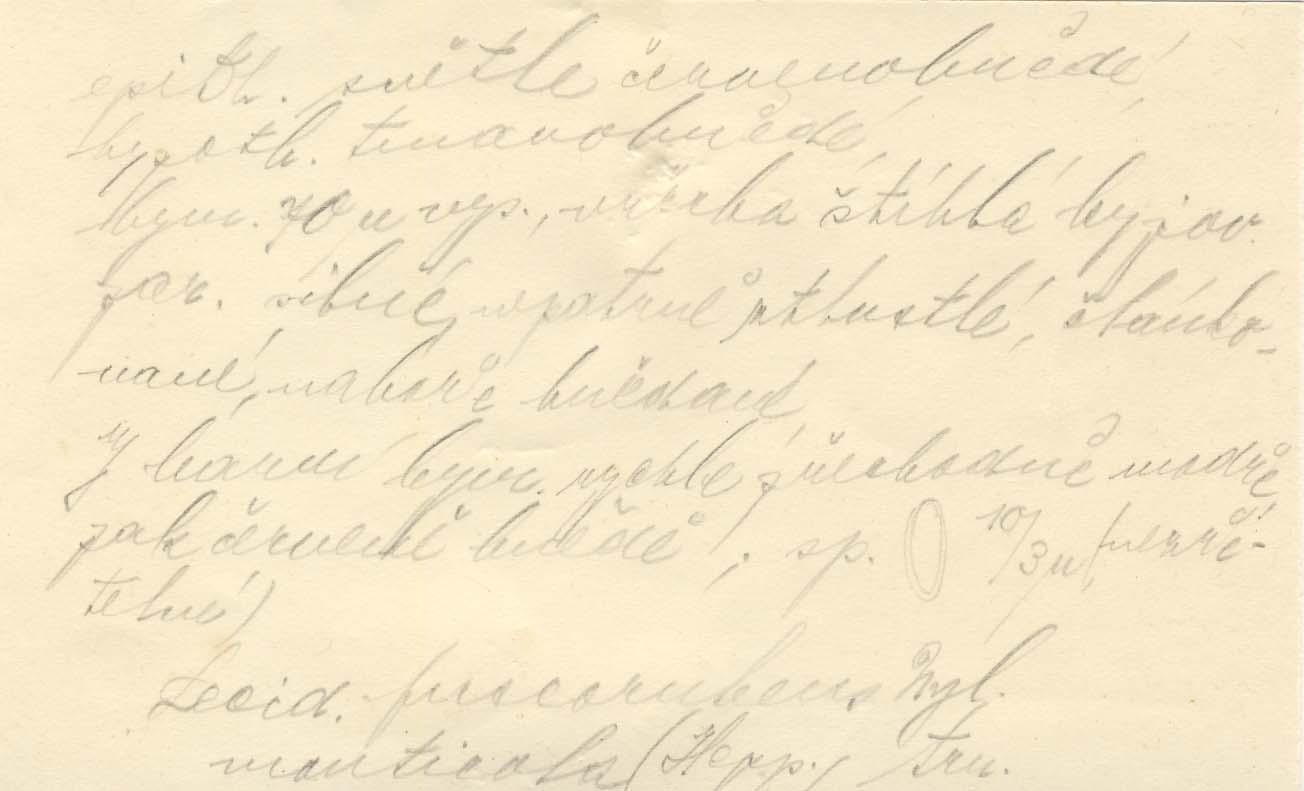 epith. světle červenohnědé,
hypoth. tmavohnědé,
hym. 70 µ vys., vřecka štíhlá kyjov.
par. silné, opatrně ztlustlé, článko-
vané, nahoře hnědavé
J barví hym. rychle přechodně modře,
pak červeně hnědě; sp. 10/3 µ (nezře-
telné)
Lecid. fuscorubens Nyl.
monticola (Hepp.)